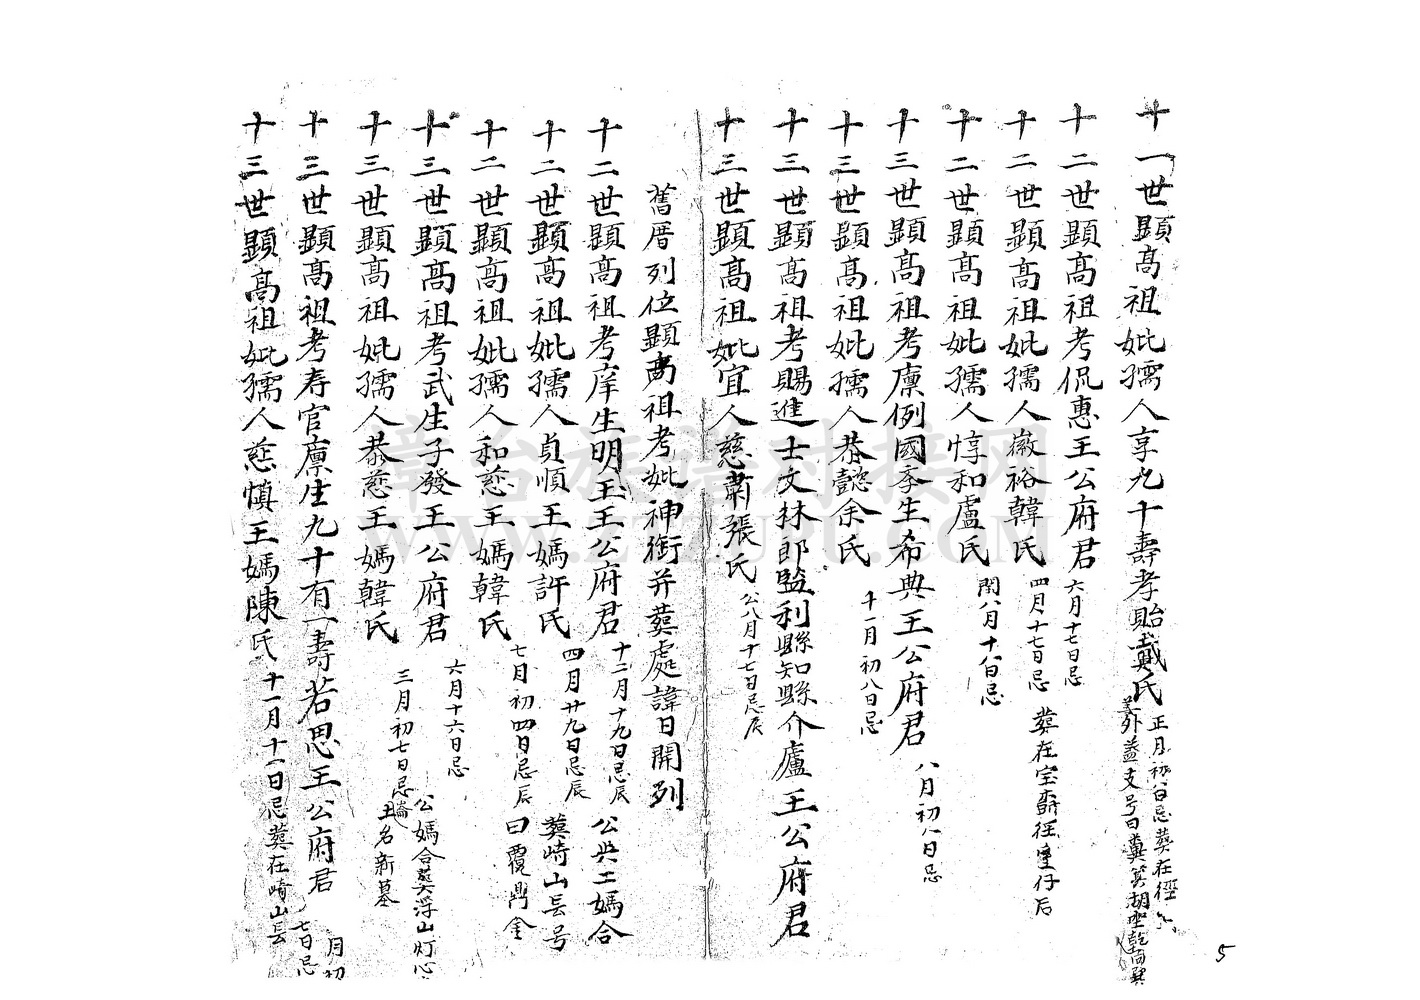 十一世顯高祖妣孺人享九十壽孝貽戴氏 正月初八日忌葬在徑
外蓋支号曰糞箕湖坐乾向巽
十二世顯高祖考侃惠王公府君 六月十七日忌
十二世顯高祖妣孺人徽裕韓氏 四月十七日忌 葬在宝斎徑里仔后
十二世顯高祖妣孺人惇和盧氏 閏八月十八日忌
十三世顯高祖考廩例國季生希典王公府君 八月初八日忌
十三世顯高祖妣孺人恭懿余氏 十一月初八日忌
十三世顯高祖考賜進士文林郎監利縣知縣介廬王公府君
十三世顯高祖妣宜人慈肅張氏 公八月十七日忌辰
舊曆列位顯高祖考妣神銜并葬處諱日開列
十二世顯高祖考庠生明王王公府君 十二月十九日忌辰 公與二媽合
十二世顯高祖妣孺人貞順王媽許氏 四月廿九日忌辰 葬崎山長号
十二世顯高祖妣孺人和慈王媽韓氏 七月初四日忌辰 曰覆鼎金
十三世顯高祖考武生子發王公府君 六月十六日忌 公媽合葬浮山灯心
十三世顯高祖妣孺人恭慈王媽韓氏 三月初七日忌 土名新墓
十三世顯高祖考寿官廩生九十有一壽若思王公府君 月初七日忌
十三世顯高祖妣孺人慈慎王媽陳氏 十一月十一日忌葬在崎山長
章台族谱对接网
WWW.ZTZUPU.COM
5